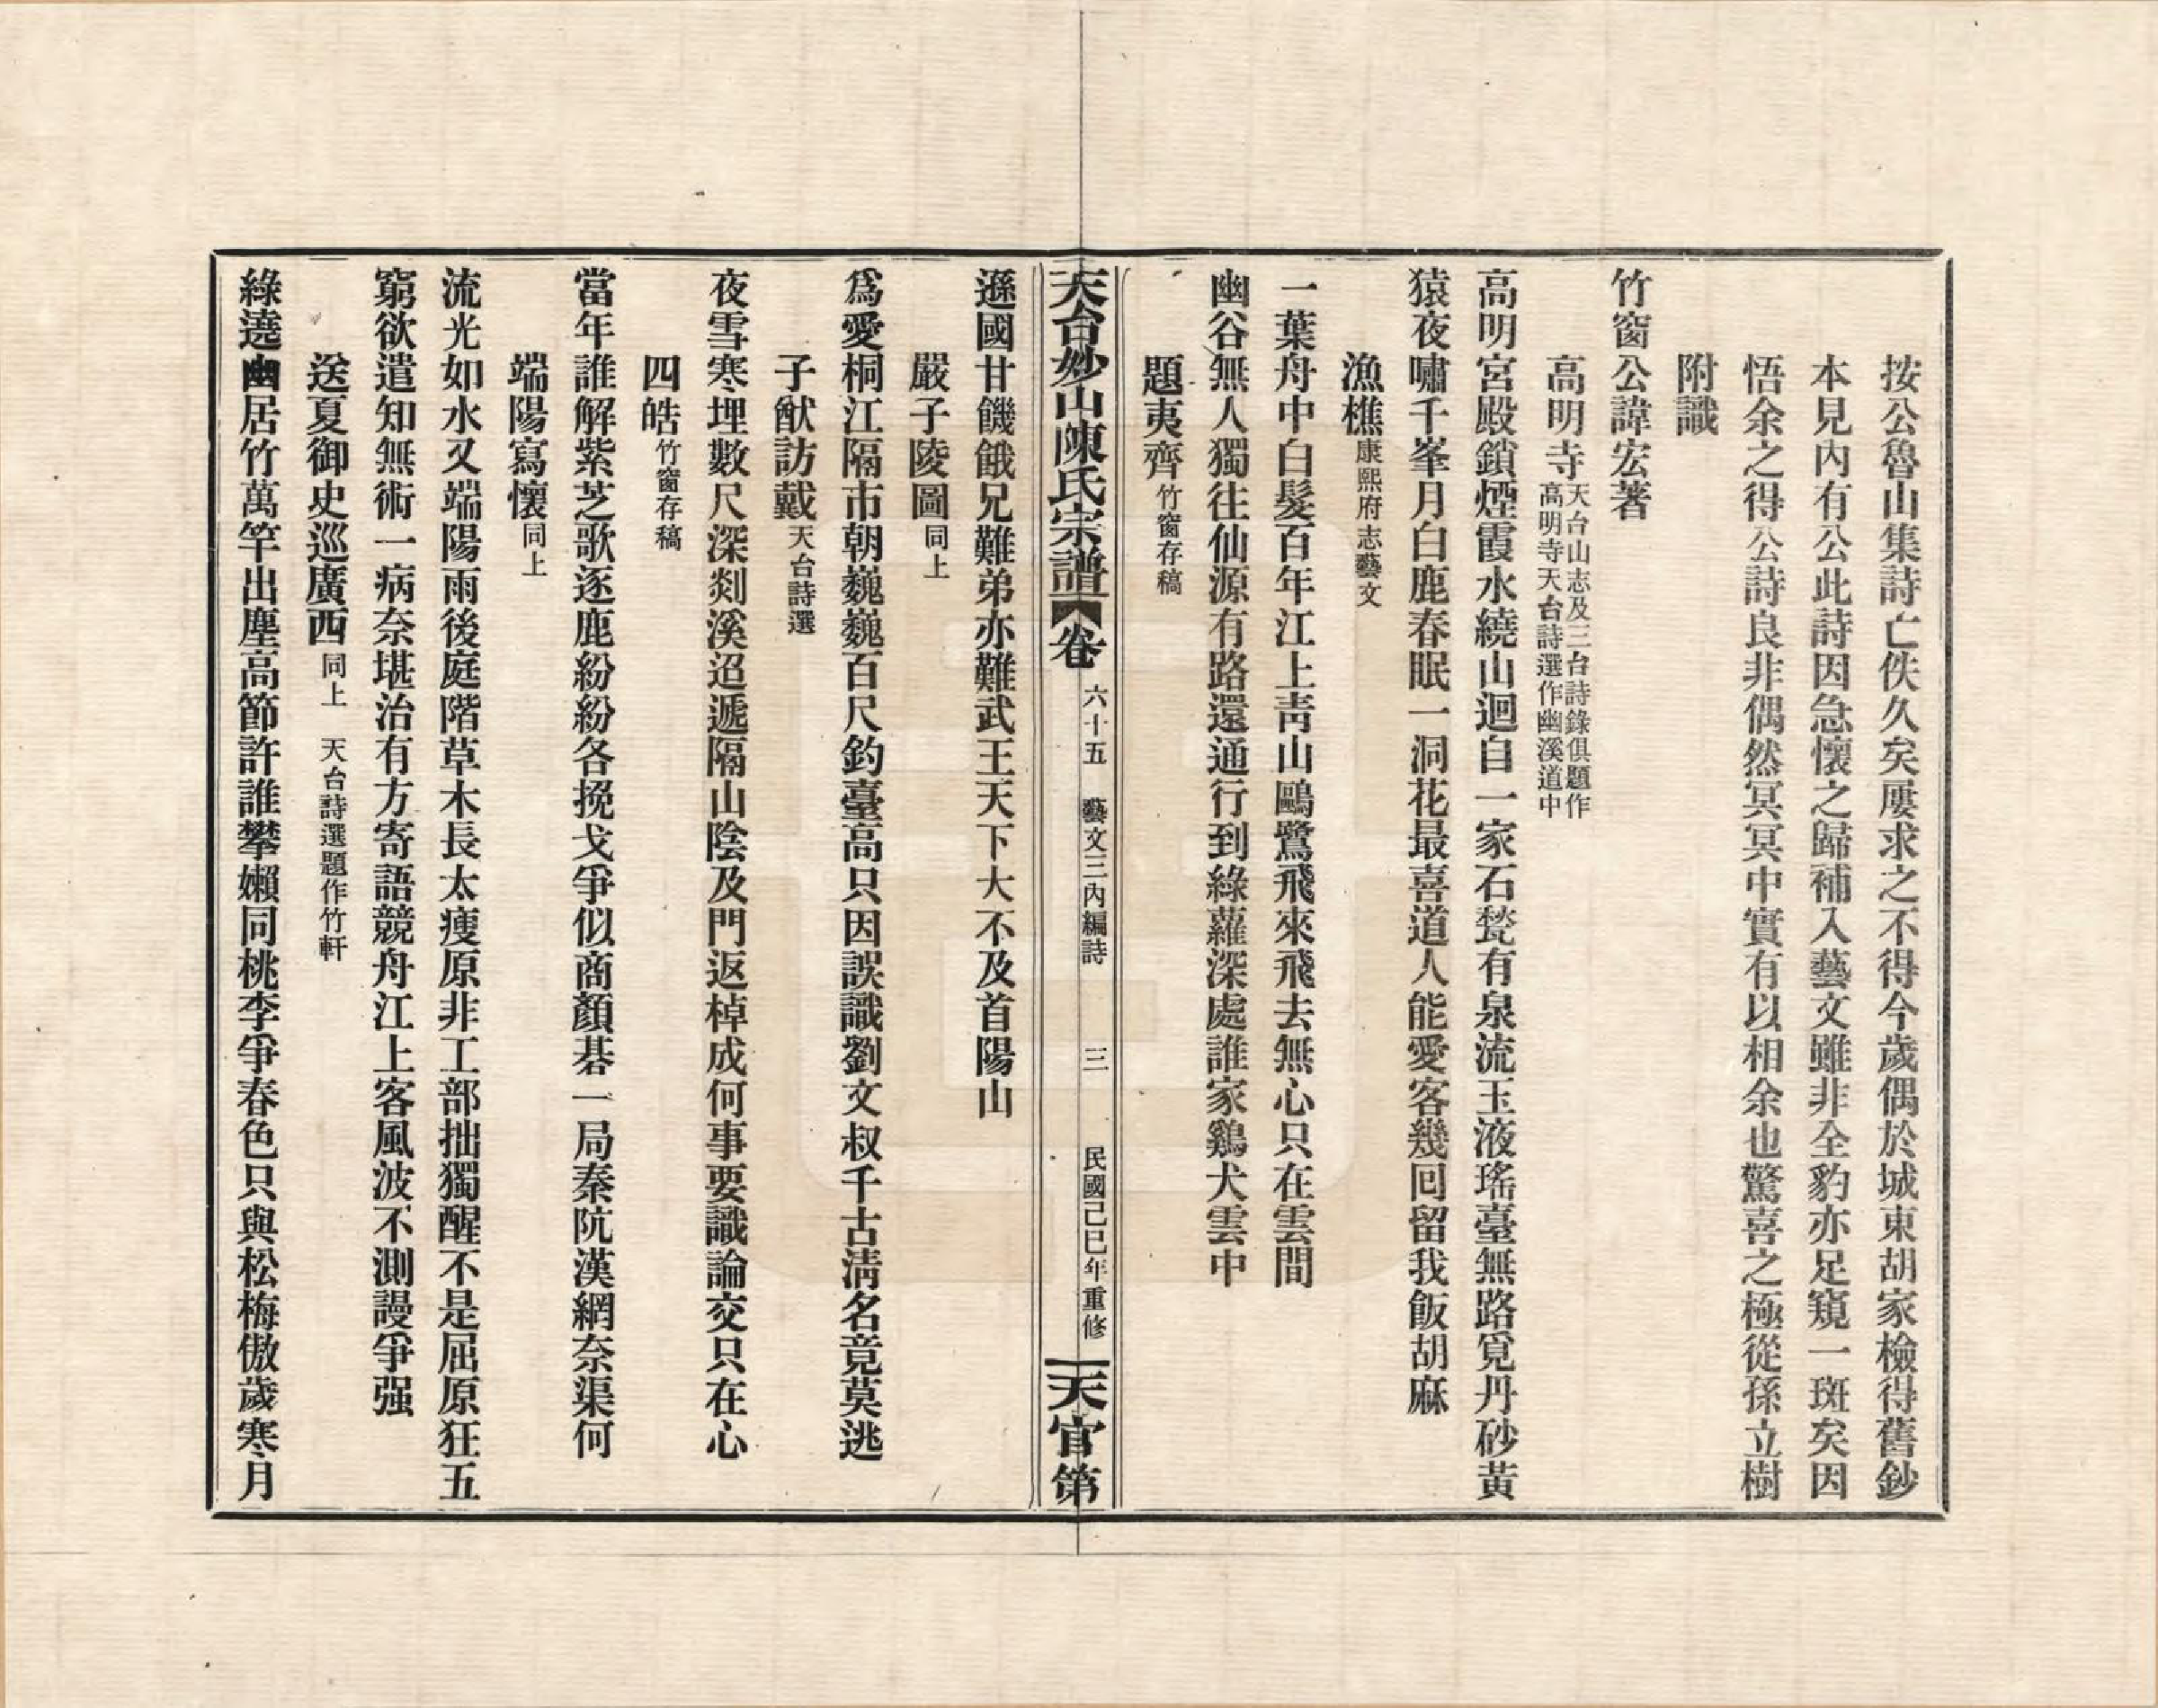 按公魯山集詩亡佚久矣屢求之不得今歲偶於城東胡家檢得舊鈔
本見內有公此詩因急懷之歸補入藝文雖非全豹亦足窺一斑矣因
悟余之得公詩良非偶然冥冥中實有以相余也驚喜之極從孫立樹
附識
竹窗公諱宏著
高明寺天台山志及三台詩錄俱題作高明寺天台詩選作幽溪道中
高明宮殿鎖煙霞水繞山迴自一家石甃有泉流玉液瑤臺無路覓丹砂黃
猿夜嘯千峯月白鹿春眠一洞花最喜道人能愛客幾回留我飯胡麻
漁樵康熙府志藝文
一葉舟中白髮百年江上靑山鷗鷺飛來飛去無心只在雲間
幽谷無人獨往仙源有路還通行到綠蘿深處誰家鷄犬雲中
題夷齊竹窗存稿
天台妙山陳氏宗譜 卷 六十五 藝文三內編詩 三 民國己巳年重修 天官第
遜國甘饑餓兄難弟亦難武王天下大不及首陽山
嚴子陵圖同上
爲愛桐江隔市朝巍巍百尺釣臺高只因誤識劉文叔千古淸名竟莫逃
子猷訪戴天台詩選
夜雪寒埋數尺深剡溪迢遞隔山陰及門返棹成何事要識論交只在心
四皓竹窗存稿
當年誰解紫芝歌逐鹿紛紛各挽戈爭似商顏碁一局秦阬漢網奈渠何
端陽寫懷同上
流光如水又端陽雨後庭階草木長太瘦原非工部拙獨醒不是屈原狂五
窮欲遣知無術一病奈堪治有方寄語競舟江上客風波不測謾爭强
送夏御史巡廣西同上 天台詩選題作竹軒
綠遶幽居竹萬竿出塵高節許誰攀嬾同桃李爭春色只與松梅傲歲寒月